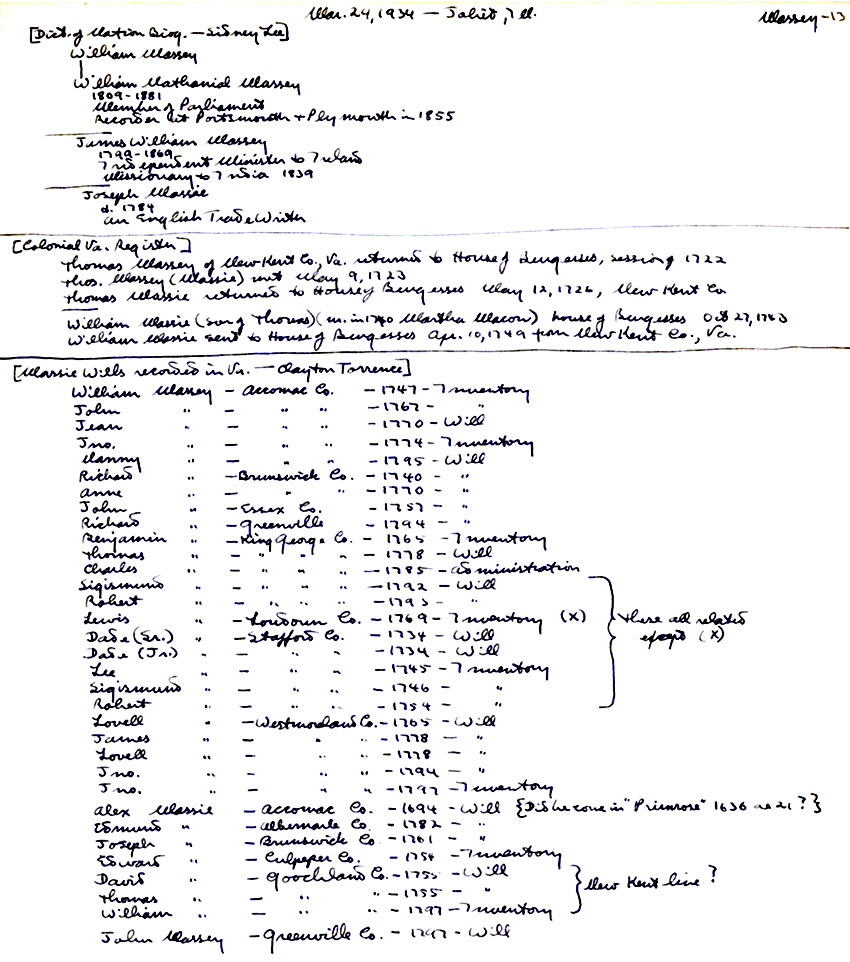 Mar. 24, 1934 — Joliet, Ill.
Massey-13
[Dict. of Nation Biog. — Sidney Lee]
William Massey
William Nathanial Massey
1809-1881
Member of Parliament
Recorder at Portsmouth + Plymouth in 1855
James William Massey
1799-1869
Independent Minister to Ireland
Missionary to India 1839
Joseph Massie
d. 1784
an English Trade Writer
[Colonial Va. Register]
Thomas Massey of New Kent Co., Va. returned to House of Burgesses, session 1722
Thos. Massey (Massie) met May 9, 1723
Thomas Massie returned to House of Burgesses May 12, 1726, New Kent Co
William Massie (son of Thomas) (m. in 1740 Martha Macon) House of Burgesses Oct 27, 1743
William Massie sent to House of Burgesses Apr. 10, 1749 from New Kent Co., Va.
[Massie Wills recorded in Va. — Clayton Torrence]
William Massey - Accomac Co. - 1747 - Inventory
John " - " " - 1767 - "
Jean " - " " - 1770 - Will
Jno. " - " " - 1774 - Inventory
Nanny " - " " - 1795 - Will
Richard " - Brunswick Co. - 1740 - "
Anne " - " " - 1770 - "
John " - Essex Co. - 1757 - "
Richard " - Greenville - 1794 - "
Benjamin " - King George Co. - 1765 - Inventory
Thomas " - " " " - 1778 - Will
Charles " - " " " - 1785 - administration
Sigismund " - " " " - 1792 - Will
Robert " - " " " - 1793 - "
Lewis " - Loudoun Co. - 1769 - Inventory (X)
These all related
except (X)
Dade (Sr.) " - Stafford Co. - 1734 - Will
Dade (Jr.) " - " " - 1734 - Will
Lee " - " " - 1745 - Inventory
Sigismund " - " " - 1746 - "
Robert " - " " - 1754 - "
Lovell " - Westmoreland Co. - 1765 - Will
James " - " " - 1778 - "
Lovell " - " " - 1778 - "
Jno. " - " " - 1794 - "
Jno. " - " " - 1797 - Inventory
Alex Massie - Accomac Co. - 1694 - Will {Did he come in "Primrose" 1636 ae 21?}
Edmund " - Albemarle Co. - 1782 - "
Joseph " - Brunswick Co. - 1761 - "
Edward " - Culpeper Co. - 1754 - Inventory
David " - Goochland Co. - 1755 - Will
New Kent line?
Thomas " - " " - 1755 - "
William " - " " - 1797 - Inventory
John Massey - Greenville Co. - 1797 - Will